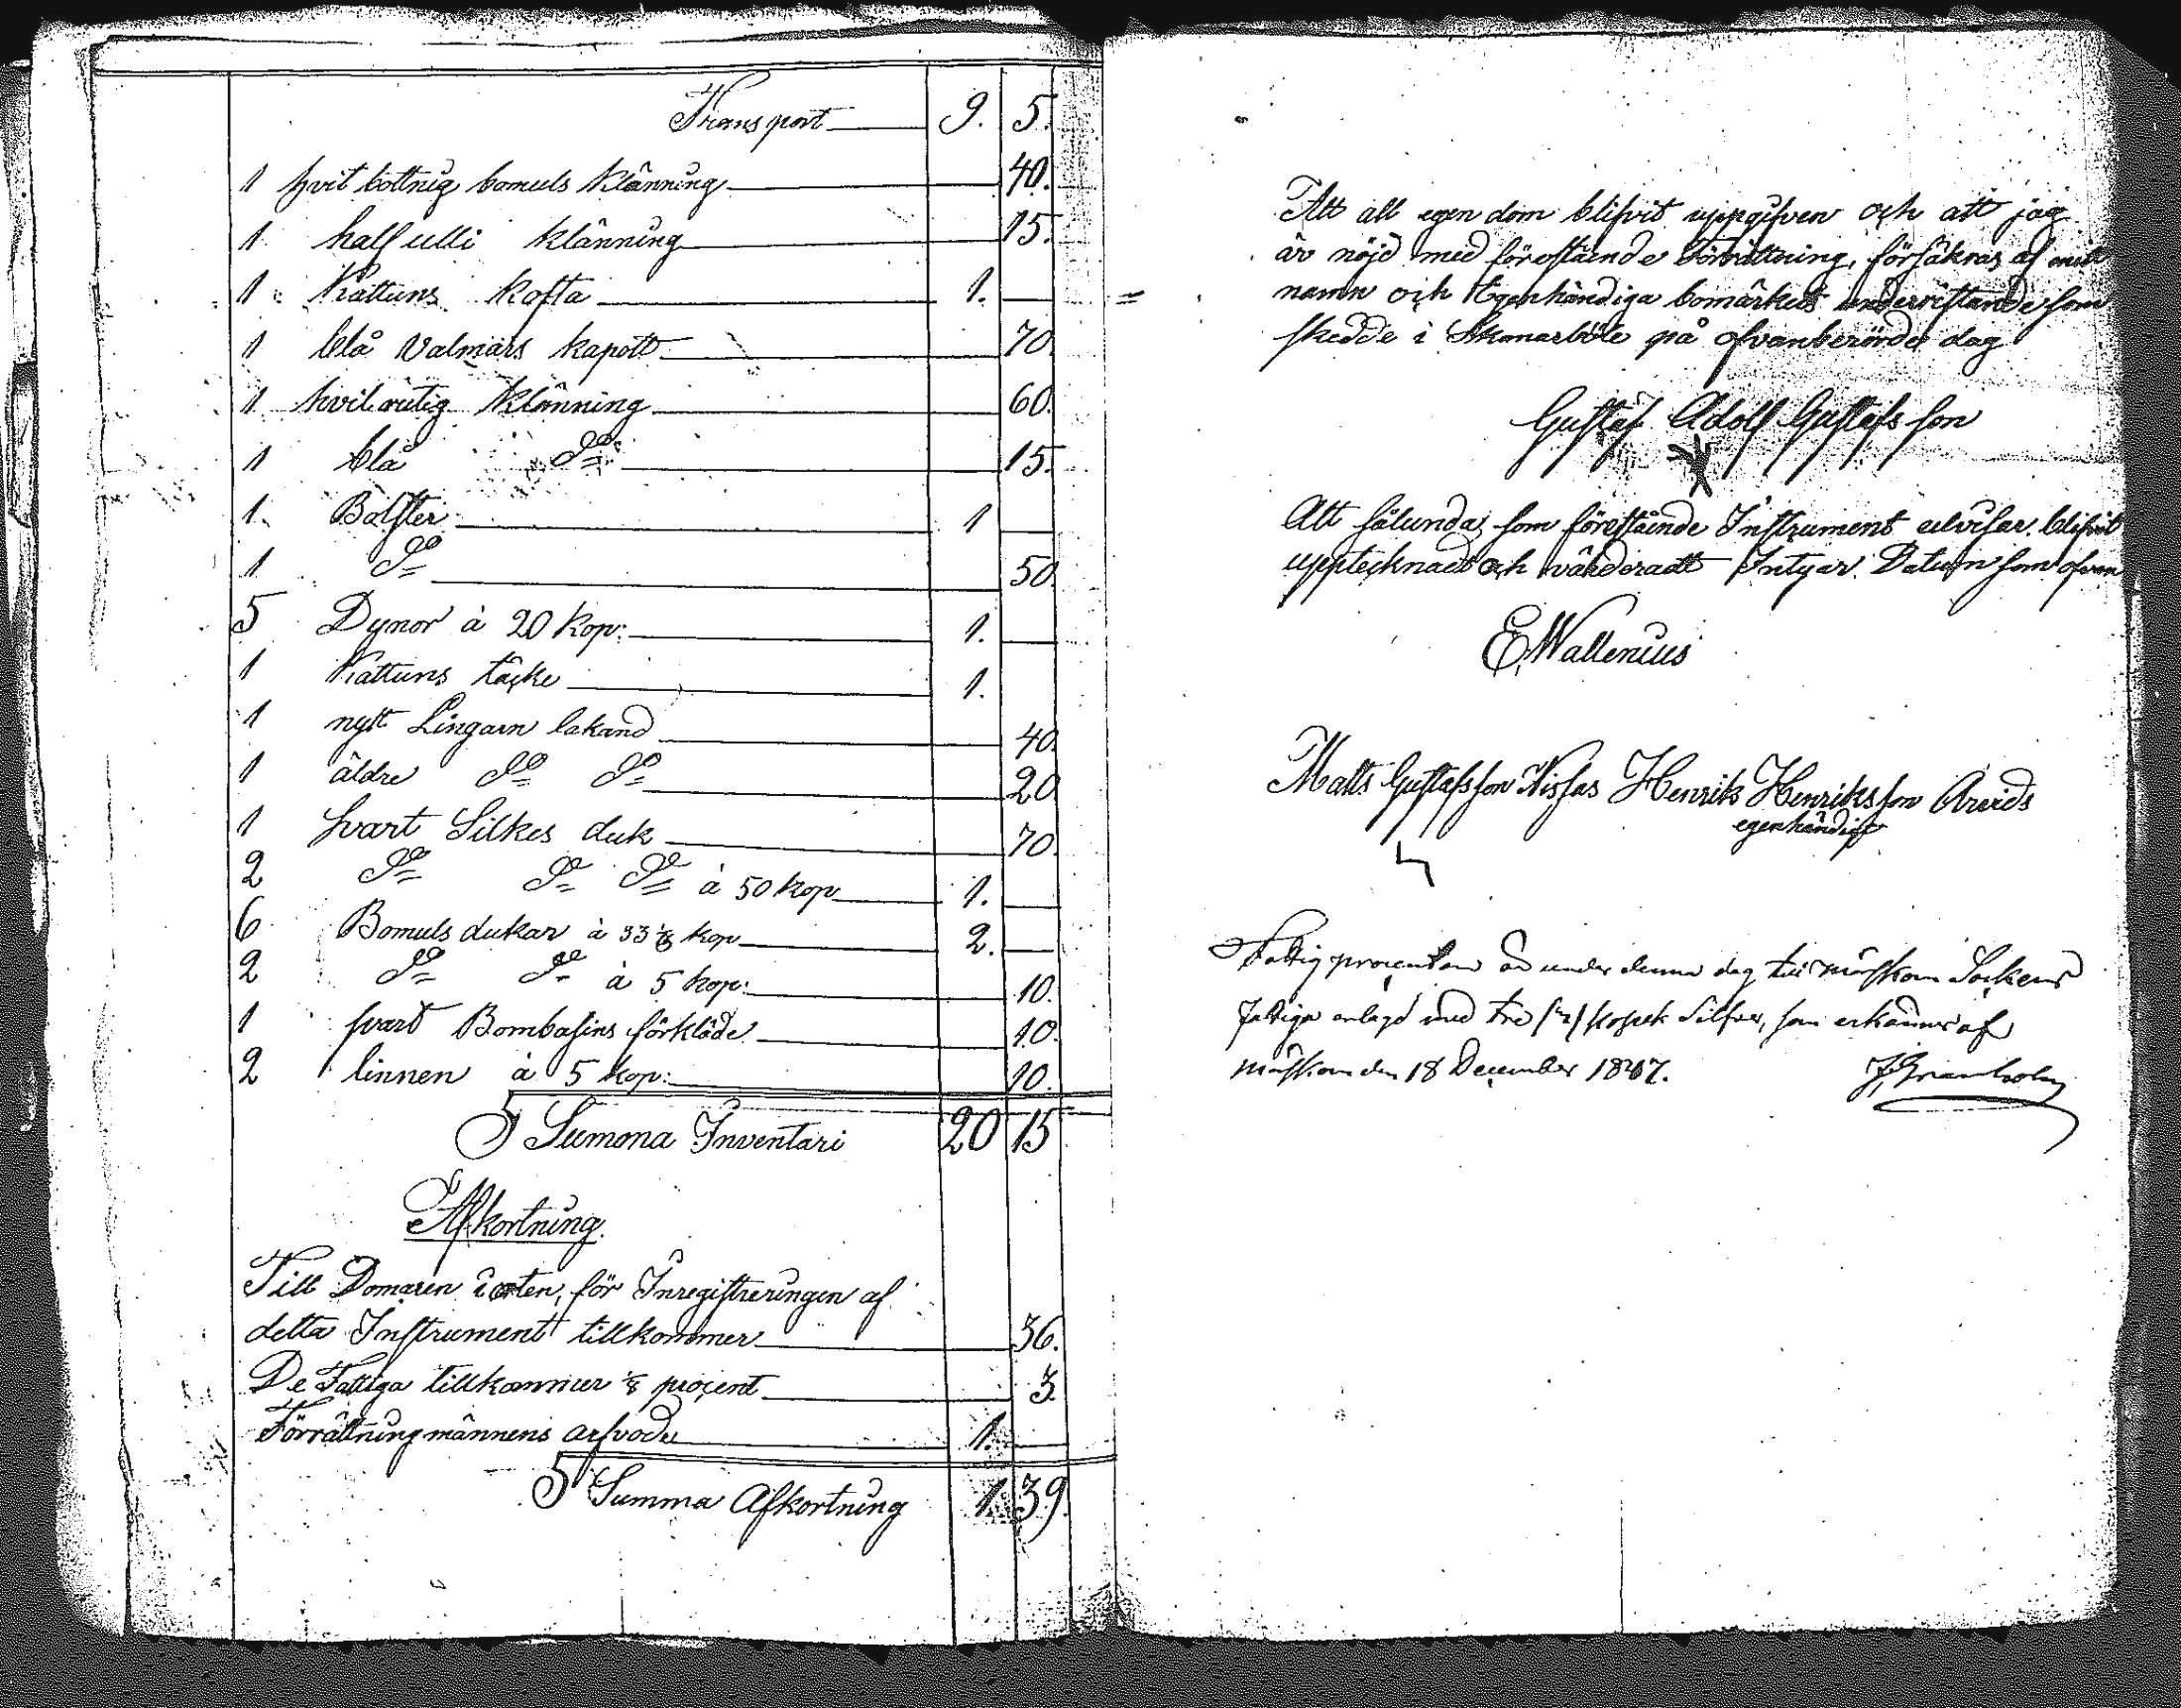 Transport 9. 5.
1 hvit bottnig bomuls klänning 40.
1 half ulli klänning 15.
1 Kattuns kofta 1.
1 blå valmars kapott 70.
1 hvit rutig klänning 60.
1 blå Do 15.
1 Bolster 1
1 Do 50.
5 Dynor à 20 kop: 1.
1 Kattuns täcke 1.
1 nytt Lingarn lakand 40.
1 äldre Do Do 20
1 svart Silkes duk 70.
2 Do Do Do à 50 kop 1.
6 Bomuls dukar à 33 1/3 kop 2.
2 Do Do à 5 kop: 10.
1 svart Bombasins förkläde 10.
2 linnen à 5 kop: 10.
Summa Inventari 20 15
Afkortning.
Till Domaren i orten, för Inregistreringen af
detta Instrument tillkommer 36.
De Fattiga tillkommer 1/8 procent 3
Förrättningmännens arfvode 1.
Summa Afkortning 1. 39.
Att all egendom blifvit uppgifven och att jag
är nöjd med förestående förrättning, försäkras af mitt
namn och Egenhändiga bomärkets undervistande som
skedde i Skomarböle på ofvanberörde dag
Gustaf Adolf Gustafsson
Att sålunda som förestående Instrument utvisar blifvit
upptecknadt och värderadt Intygar. Datum som ofvan
E Wallenius
Matts Gustafsson Nissas Henrik Henriksson Arvids
egenhändigt
Fattig procenten är under denna dag till Mörskom Sockens
fattiga erlagd med tre kopek Silfver, som erkännes af
Mörskom den 18 December 1847.